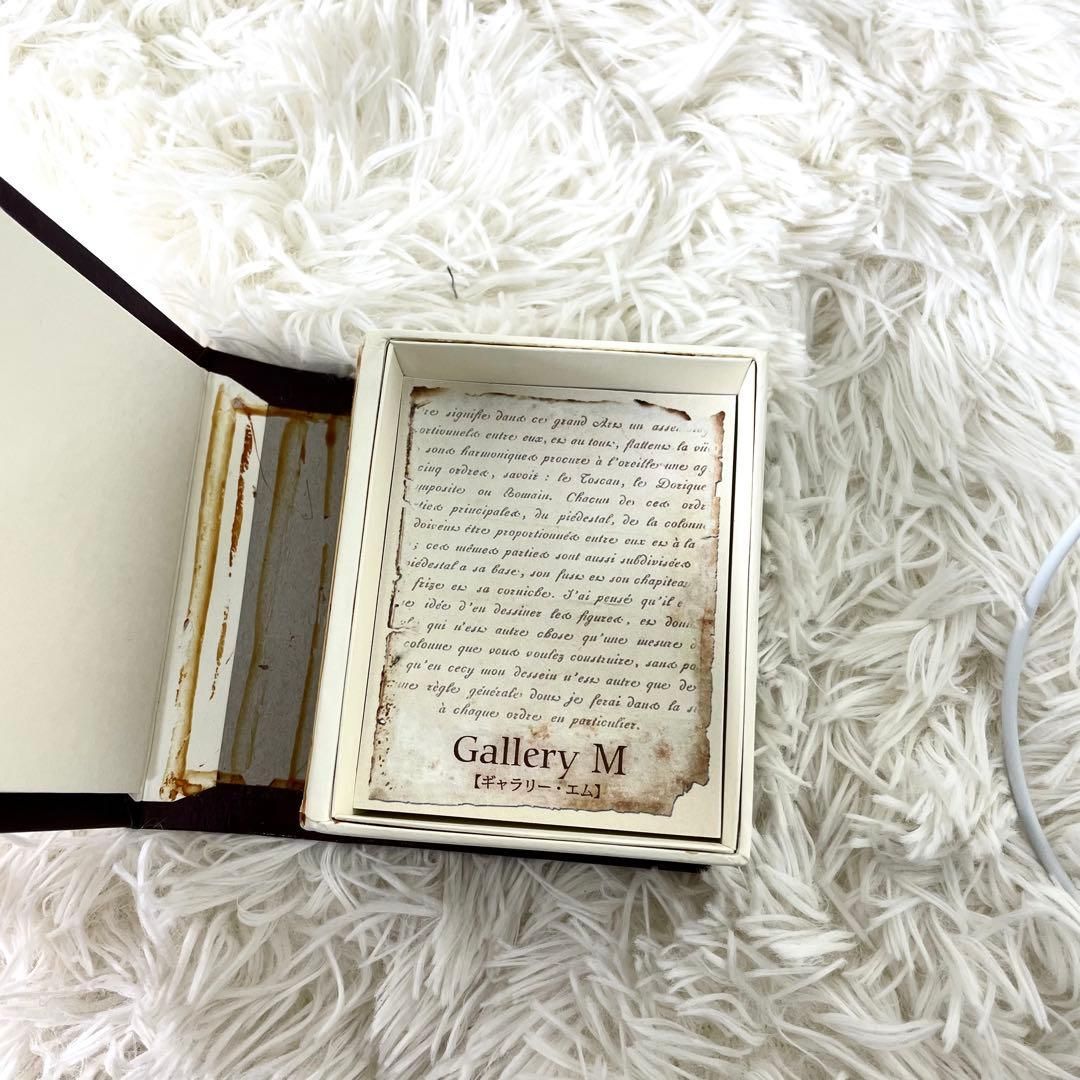 re signifie dans ce grand Art un
ortionnels entre eux, et au tour, flattent la
sons harmoniques procure à l'oreille une ag
cinq ordres, savoir : le Toscan, le Dorique
mposite ou Romain. Chacun de ces ordr
ties principales, du piédestal, de la colonn
doivent être proportionnés entre eux et à la
; ces mêmes parties sont aussi subdivisées
iédestal a sa base, son fust et son chapiteau
frize et sa corniche. J'ai pensé qu'il
idée d'en dessiner les figures, et
qui n'est autre chose qu'une mesure d
colonne que vous voulez construire, sans po
qu'en cecy mon dessein n'est autre que de
ne règle générale dont je ferai dans la
à chaque ordre en particulier.
Gallery M
【ギャラリー・エム】